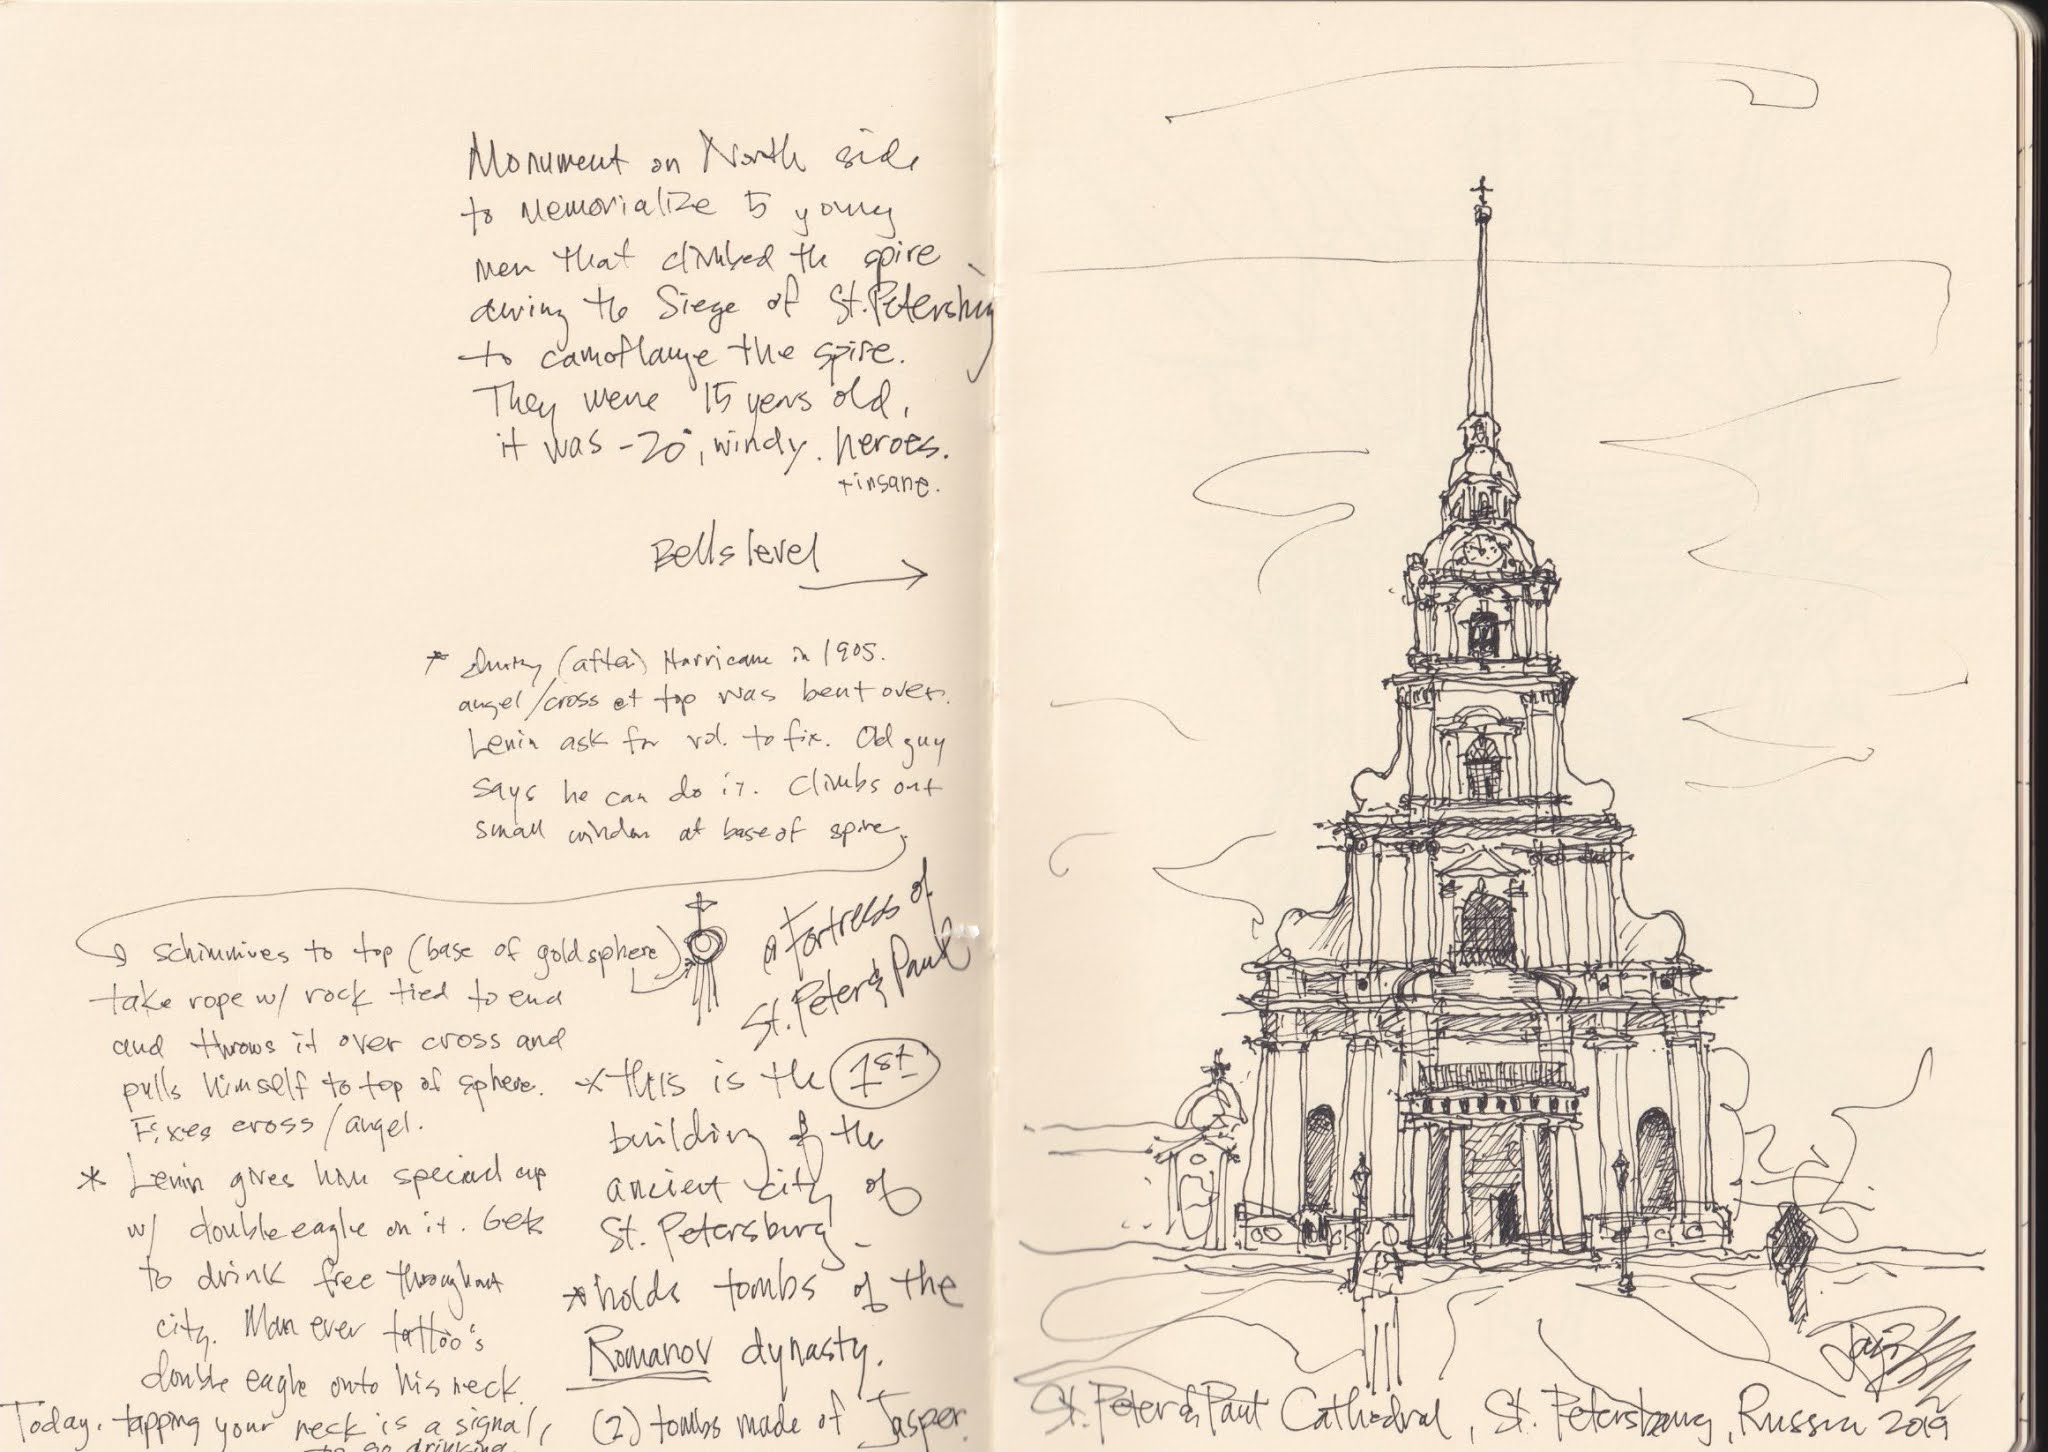 Monument on North side
to Memorialize 5 young
men that climbed the spire
during the Siege of St. Petersburg
to camoflauge the spire.
They were 15 years old,
it was -20°, windy. heroes.
+ insane.
Bells level
* during (after) Hurricane in 1905.
angel/cross at top was bent over.
Lenin ask for vol. to fix. Old guy
says he can do it. Climbs out
small window at base of spire,
schimmives to top (base of gold sphere)
take rope w/ rock tied to end
and throws it over cross and
pulls himself to top of sphere.
Fixes cross/angel.
* Lenin gives him special cup
w/ double eagle on it. Gets
to drink free throughout
city. Man ever tattoo's
double eagle onto his neck.
Today, tapping your neck is a signal,
to go drinking.
@ Fortress of
St. Peter & Paul
* this is the 1st
building of the
ancient city of
St. Petersburg
* holds tombs of the
Romanov dynasty.
(2) tombs made of Jasper.
St. Peter & Paul Cathedral, St. Petersburg, Russia 2019